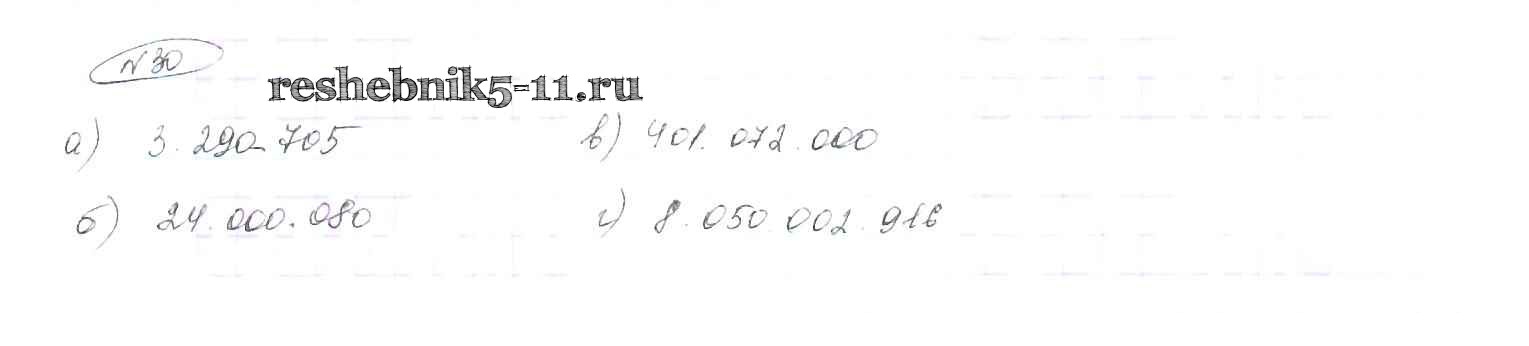 №30
reshebnik5-11.ru
а) 3.290.705 в) 401.072.000
б) 24.000.080 г) 8.050.002.916